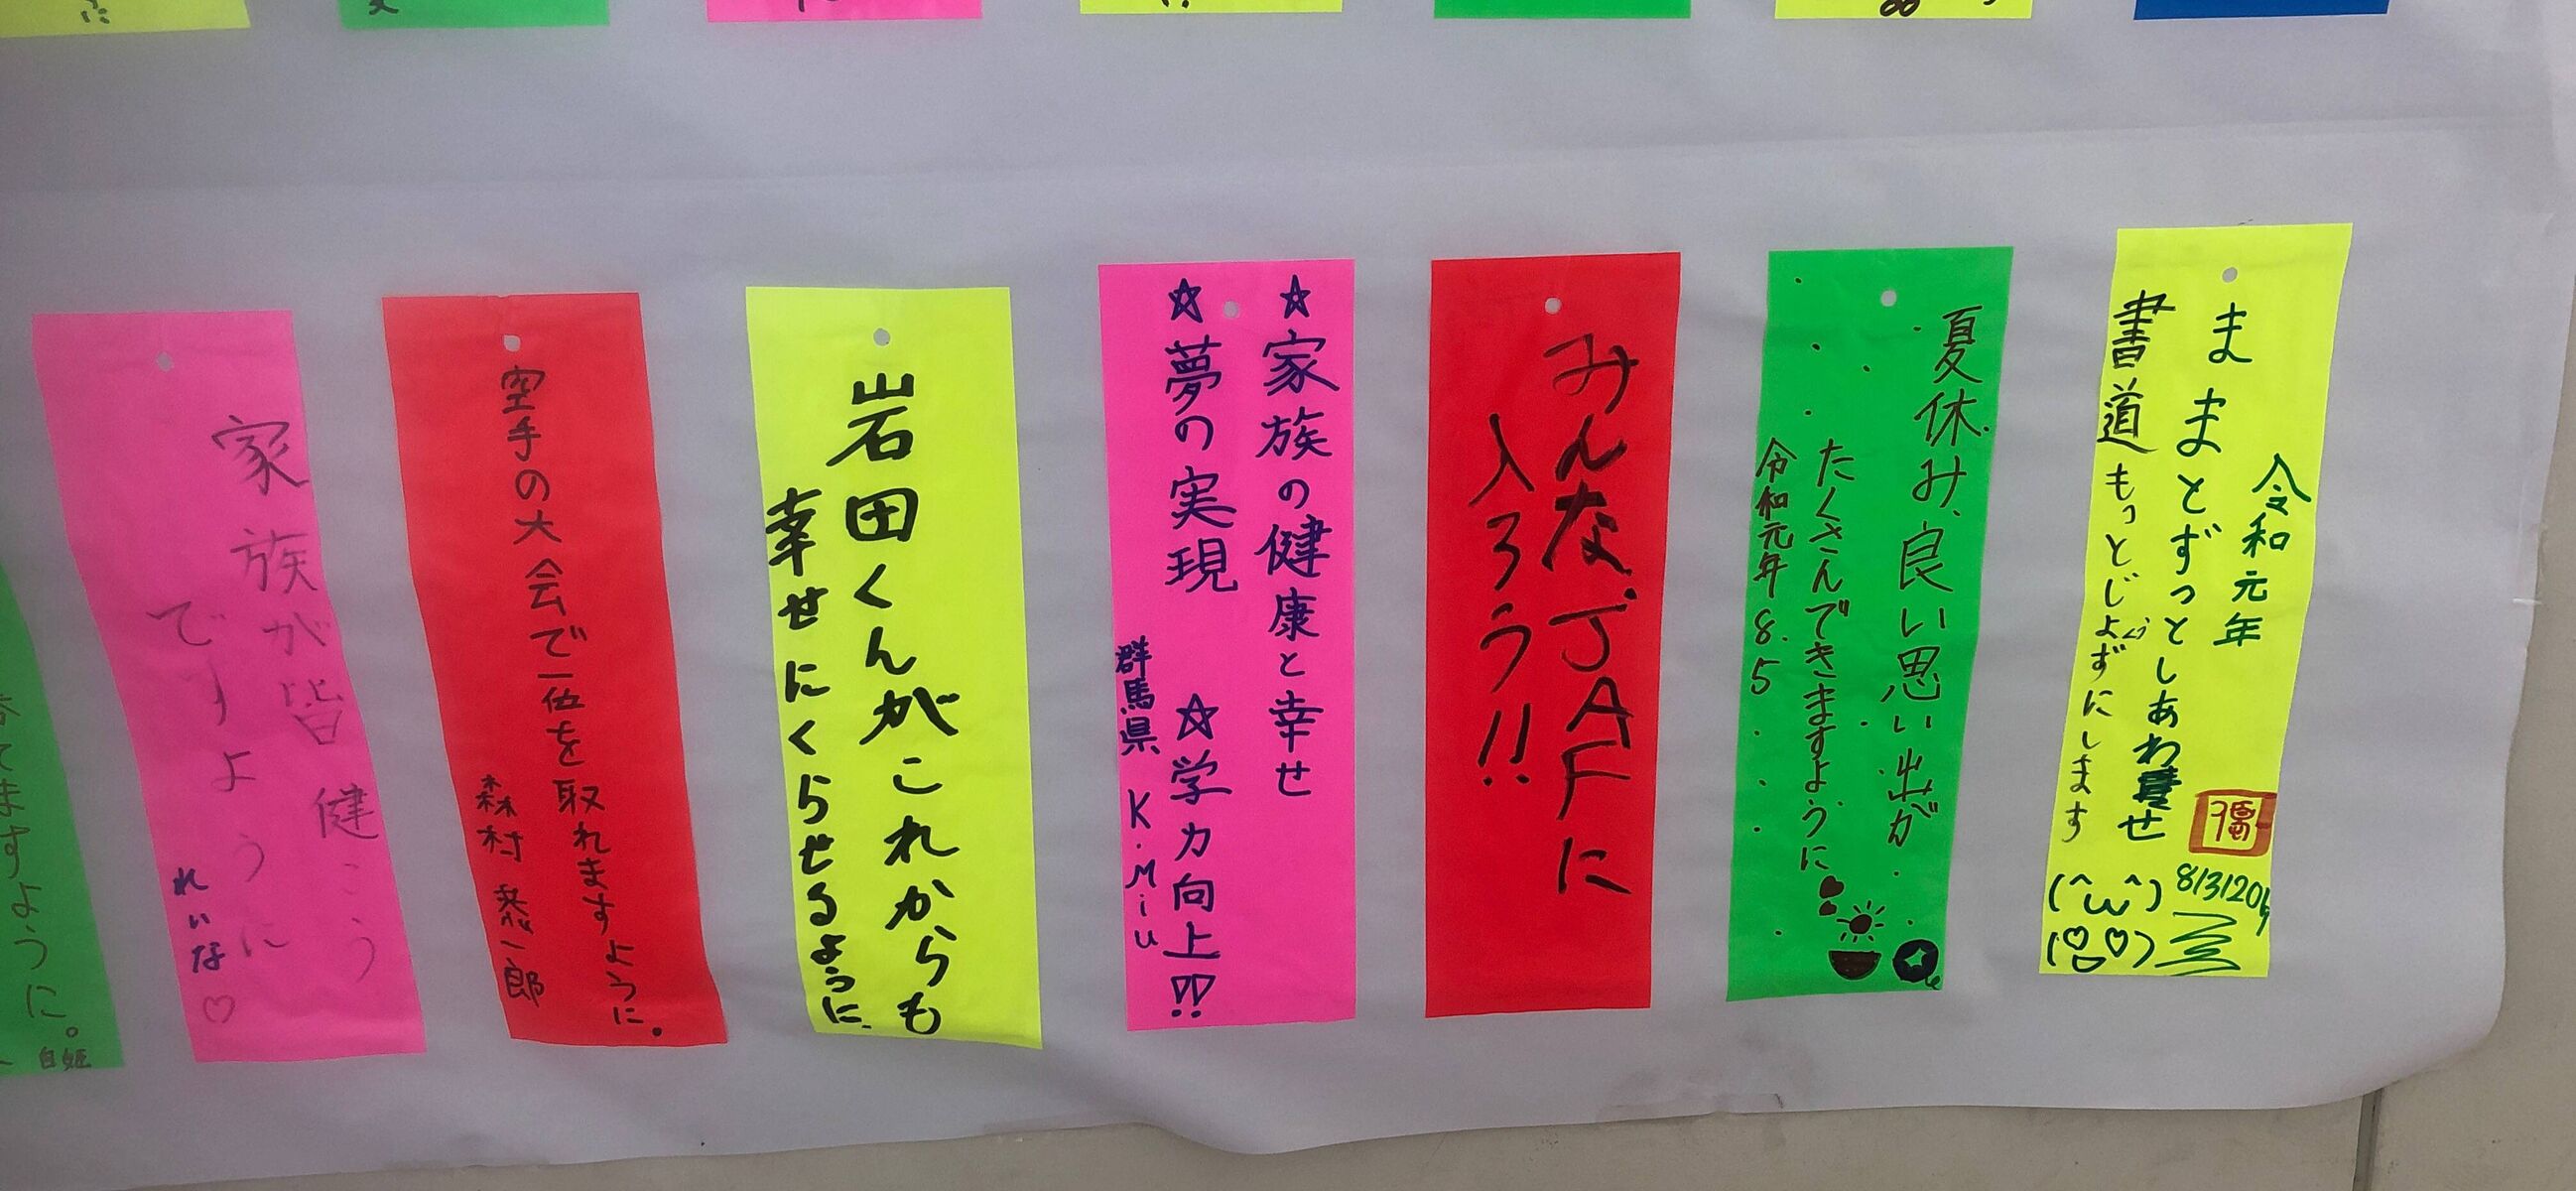 令和元年
ままとずっとしあわせ
書道もっとじょうずにします
8/3/2019
(^ω^)
夏休み、良い思い出が
たくさんできますように
令和元年8.5
みんな、JAFに
入ろう!!
☆家族の健康と幸せ
☆夢の実現 ☆学力向上!!
群馬県 K.Miu
岩田くんがこれからも
幸せにくらせるように
空手の大会で一位を取れますように。
森村 一郎
家族が皆健こう
ですように
れいな♡
てますように。